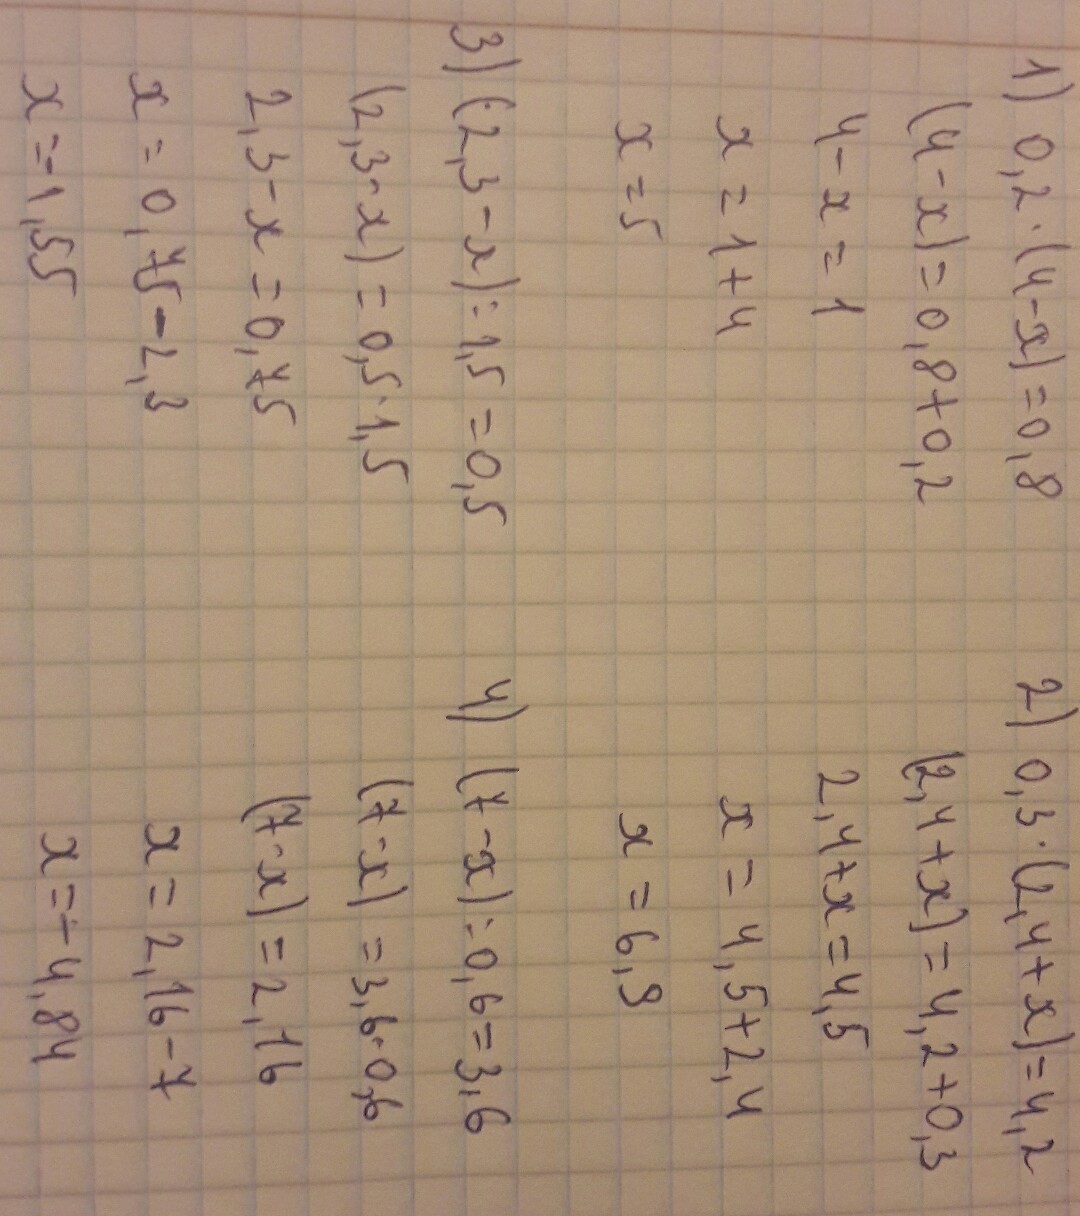 1) 0,2·(4-x)=0,8
(4-x)=0,8+0,2
4-x=1
x=1+4
x=5
2) 0,3·(2,4+x)=4,2
(2,4+x)=4,2+0,3
2,4+x=4,5
x=4,5+2,4
x=6,9
3) (2,3-x):1,5=0,5
(2,3-x)=0,5·1,5
2,3-x=0,75
x=0,75-2,3
x=-1,55
4) (7-x):0,6=3,6
(7-x)=3,6·0,6
(7-x)=2,16
x=2,16-7
x=-4,84